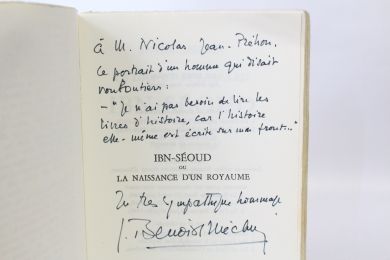 à M. Nicolas Jean-Préhon,
ce portrait d'un homme qui disait
volontiers :
- "Je n'ai pas besoin de lire les
livres d'histoire, car l'histoire
elle-même est écrite sur mon front..."
IBN-SÉOUD
OU
LA NAISSANCE D'UN ROYAUME
En très sympathique hommage
J. Benoist-Méchin